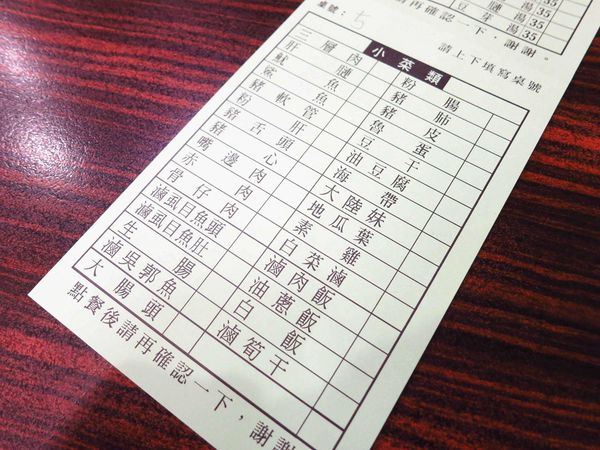 豆芽湯 35
湯 35
再確認一下,謝謝。
桌號: 5
請上下填寫桌號
小菜類
三層肉 粉腸
肝 豬肺
魷魚 豬皮
鯊魚 魯蛋
豬軟管 豆干
粉肝 油豆腐
豬舌頭 海帶
豬心 大陸妹
嘴邊肉 地瓜葉
赤肉 素雞
骨仔肉 白菜滷
滷虱目魚頭 滷肉飯
滷虱目魚肚 油蔥飯
生腸 白飯
滷吳郭魚 滷筍干
大腸頭
點餐後請再確認一下,謝謝